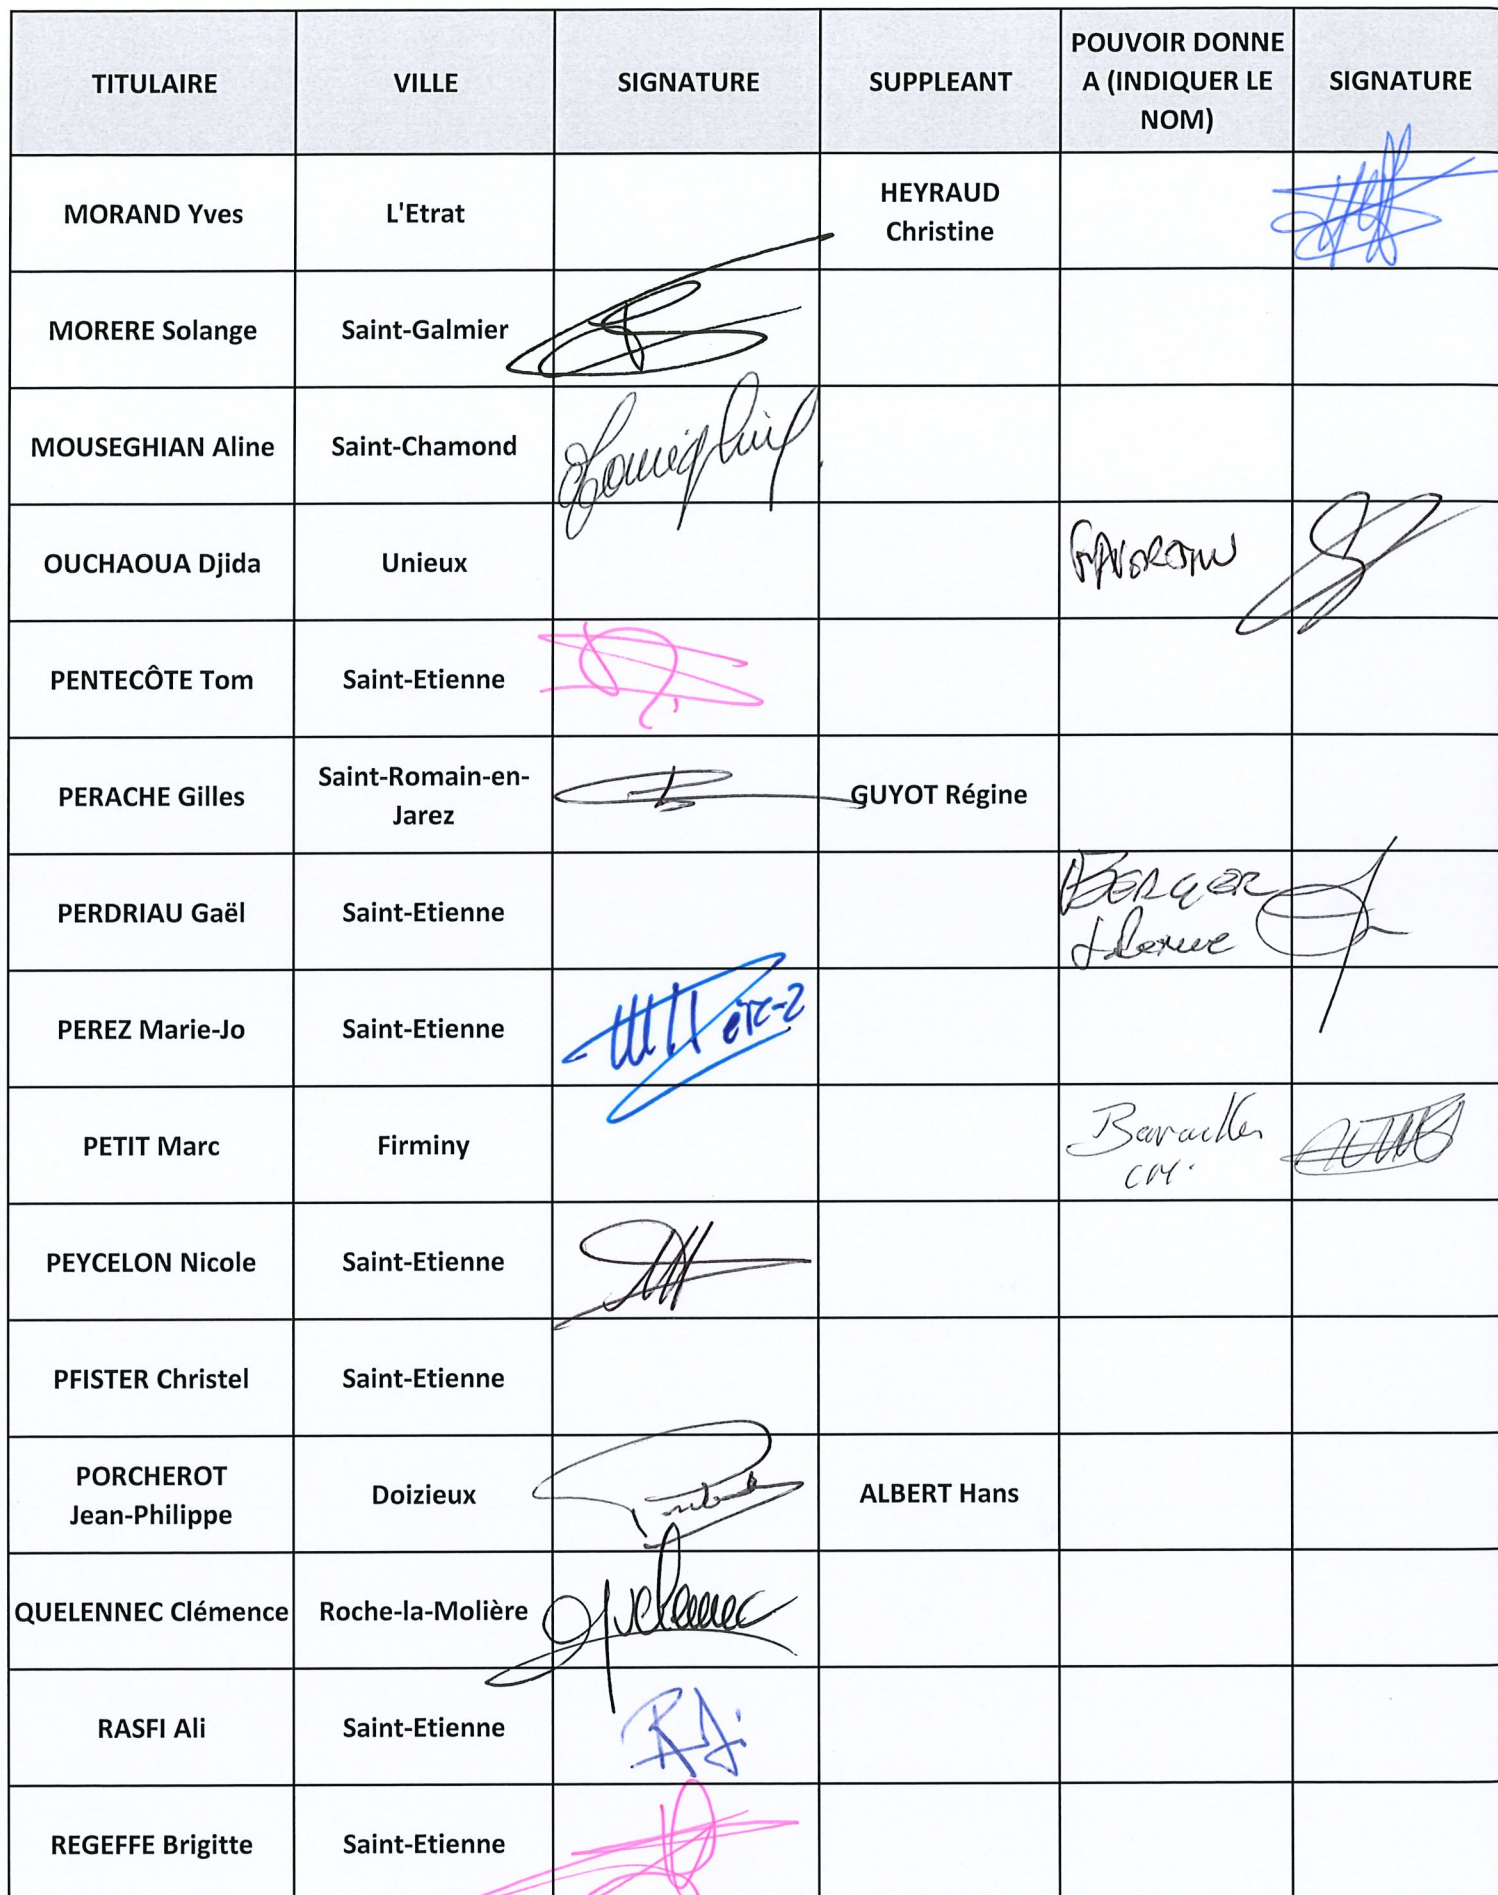 TITULAIRE
VILLE
SIGNATURE
SUPPLEANT
POUVOIR DONNE
A (INDIQUER LE
NOM)
SIGNATURE
MORAND Yves
L'Etrat
HEYRAUD
Christine
MORERE Solange
Saint-Galmier
MOUSEGHIAN Aline
Saint-Chamond
OUCHAOUA Djida
Unieux
PENTECÔTE Tom
Saint-Etienne
PERACHE Gilles
Saint-Romain-en-
Jarez
GUYOT Régine
PERDRIAU Gaël
Saint-Etienne
BERGER
PEREZ Marie-Jo
Saint-Etienne
PETIT Marc
Firminy
PEYCELON Nicole
Saint-Etienne
PFISTER Christel
Saint-Etienne
PORCHEROT
Jean-Philippe
Doizieux
ALBERT Hans
QUELENNEC Clémence
Roche-la-Molière
Quelennec
RASFI Ali
Saint-Etienne
REGEFFE Brigitte
Saint-Etienne